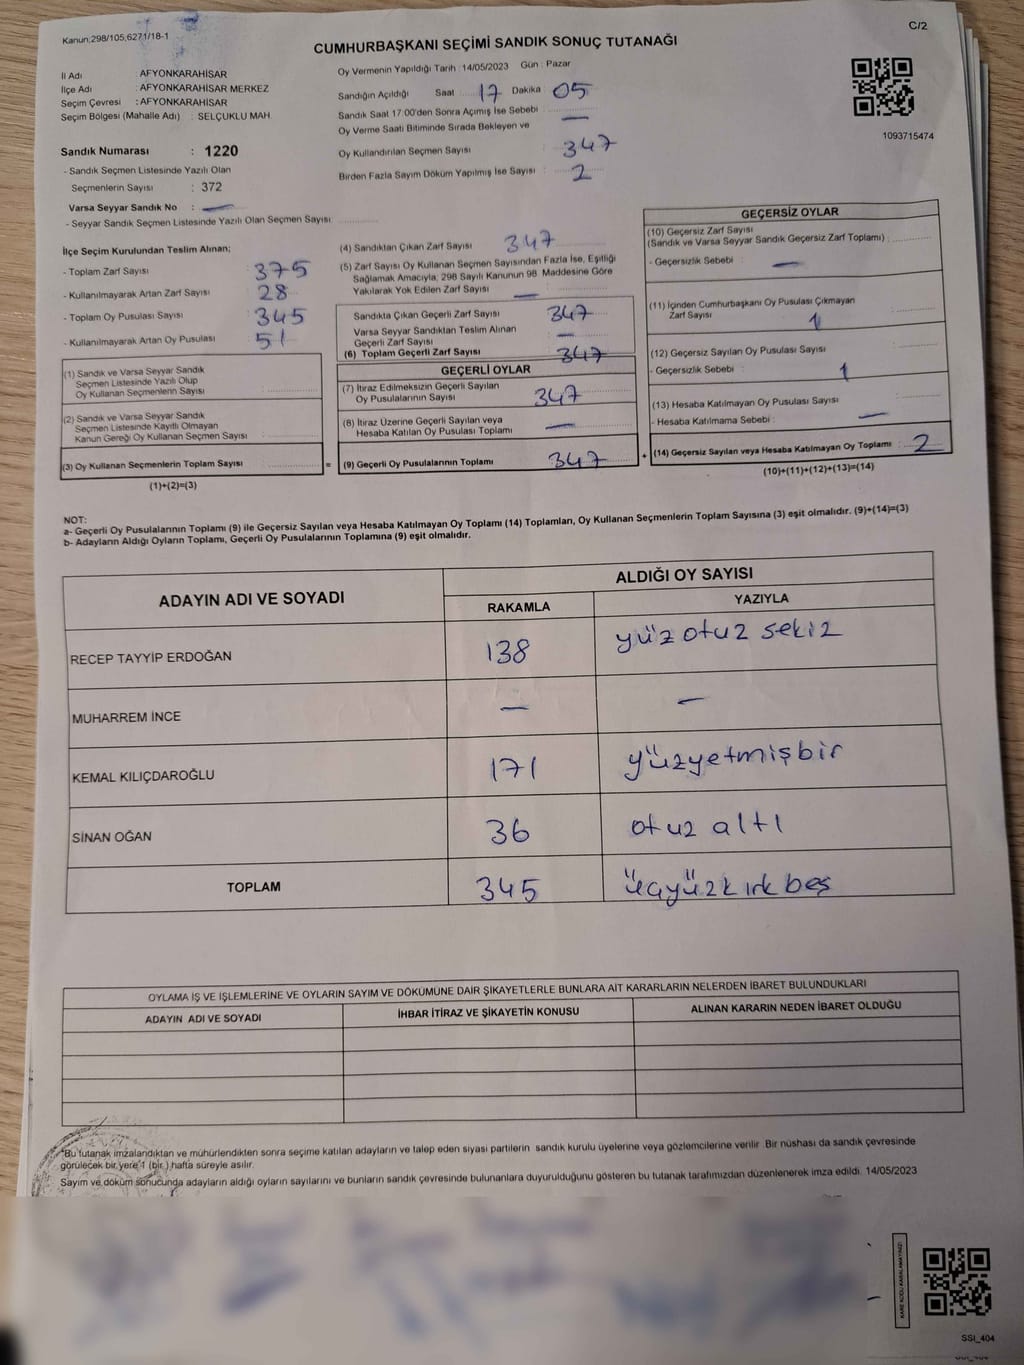 Kanun:298/105,6271/18-1
C/2
CUMHURBAŞKANI SEÇİMİ SANDIK SONUÇ TUTANAĞI
İl Adı : AFYONKARAHİSAR
İlçe Adı : AFYONKARAHİSAR MERKEZ
Seçim Çevresi : AFYONKARAHİSAR
Seçim Bölgesi (Mahalle Adı) : SELÇUKLU MAH
Sandık Numarası : 1220
- Sandık Seçmen Listesinde Yazılı Olan
Seçmenlerin Sayısı : 372
Varsa Seyyar Sandık No : —
- Seyyar Sandık Seçmen Listesinde Yazılı Olan Seçmen Sayısı:
Oy Vermenin Yapıldığı Tarih : 14/05/2023 Gün : Pazar
Sandığın Açıldığı Saat 17 Dakika 05
Sandık Saat 17:00'den Sonra Açımış İse Sebebi : —
Oy Verme Saati Bitiminde Sırada Bekleyen ve
Oy Kullandırılan Seçmen Sayısı : 347
Birden Fazla Sayım Döküm Yapılmış İse Sayısı : 2
1093715474
İlçe Seçim Kurulundan Teslim Alınan;
- Toplam Zarf Sayısı : 375
- Kullanılmayarak Artan Zarf Sayısı : 28
- Toplam Oy Pusulası Sayısı : 345
- Kullanılmayarak Artan Oy Pusulası : 51
(1) Sandık ve Varsa Seyyar Sandık
Seçmen Listesinde Yazılı Olup
Oy Kullanan Seçmenlerin Sayısı
(2) Sandık ve Varsa Seyyar Sandık
Seçmen Listesinde Kayıtlı Olmayan
Kanun Gereği Oy Kullanan Seçmen Sayısı :
(3) Oy Kullanan Seçmenlerin Toplam Sayısı
(1)+(2)=(3)
(4) Sandıktan Çıkan Zarf Sayısı : 347
(5) Zarf Sayısı Oy Kullanan Seçmen Sayısından Fazla İse, Eşitliği
Sağlamak Amacıyla; 298 Sayılı Kanunun 98. Maddesine Göre
Yakılarak Yok Edilen Zarf Sayısı : —
Sandıkta Çıkan Geçerli Zarf Sayısı 347
Varsa Seyyar Sandıktan Teslim Alınan
Geçerli Zarf Sayısı —
(6) Toplam Geçerli Zarf Sayısı 347
GEÇERLİ OYLAR
(7) İtiraz Edilmeksizin Geçerli Sayılan
Oy Pusulalarının Sayısı 347
(8) İtiraz Üzerine Geçerli Sayılan veya
Hesaba Katılan Oy Pusulası Toplamı —
= (9) Geçerli Oy Pusulalarının Toplamı 347
GEÇERSİZ OYLAR
(10) Geçersiz Zarf Sayısı
(Sandık ve Varsa Seyyar Sandık Geçersiz Zarf Toplamı) :
- Geçersizlik Sebebi : —
(11) İçinden Cumhurbaşkanı Oy Pusulası Çıkmayan
Zarf Sayısı : 1
(12) Geçersiz Sayılan Oy Pusulası Sayısı
- Geçersizlik Sebebi : 1
(13) Hesaba Katılmayan Oy Pusulası Sayısı :
- Hesaba Katılmama Sebebi : —
+ (14) Geçersiz Sayılan veya Hesaba Katılmayan Oy Toplamı : 2
(10)+(11)+(12)+(13)=(14)
NOT:
a- Geçerli Oy Pusulalarının Toplamı (9) ile Geçersiz Sayılan veya Hesaba Katılmayan Oy Toplamı (14) Toplamları, Oy Kullanan Seçmenlerin Toplam Sayısına (3) eşit olmalıdır. (9)+(14)=(3)
b- Adayların Aldığı Oyların Toplamı, Geçerli Oy Pusulalarının Toplamına (9) eşit olmalıdır.
ADAYIN ADI VE SOYADI
ALDIĞI OY SAYISI
RAKAMLA YAZIYLA
RECEP TAYYİP ERDOĞAN 138 yüz otuz sekiz
MUHARREM İNCE — —
KEMAL KILIÇDAROĞLU 171 yüzyetmişbir
SİNAN OĞAN 36 otuz altı
TOPLAM 345 üçyüzkırk beş
OYLAMA İŞ VE İŞLEMLERİNE VE OYLARIN SAYIM VE DÖKÜMÜNE DAİR ŞİKAYETLERLE BUNLARA AİT KARARLARIN NELERDEN İBARET BULUNDUKLARI
ADAYIN ADI VE SOYADI İHBAR İTİRAZ VE ŞİKAYETİN KONUSU ALINAN KARARIN NEDEN İBARET OLDUĞU
*Bu tutanak imzalandıktan ve mühürlendikten sonra seçime katılan adayların ve talep eden siyasi partilerin sandık kurulu üyelerine veya gözlemcilerine verilir. Bir nüshası da sandık çevresinde
görülecek bir yere 1 (bir ) hafta süreyle asılır.
Sayım ve döküm sonucunda adayların aldığı oyların sayılarını ve bunların sandık çevresinde bulunanlara duyurulduğunu gösteren bu tutanak tarafımızdan düzenlenerek imza edildi. 14/05/2023
KARE KODU KARALAMAYINIZ!
SSI_404